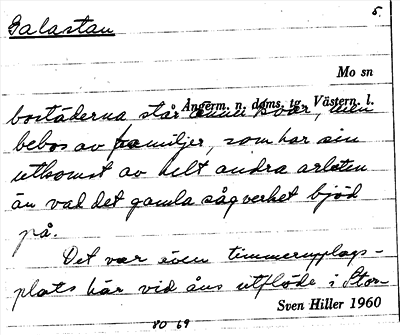 Galastan
5.
Mo sn
Ångerm. n. doms. tg. Västern. l.
bostäderna står ännu kvar, men
bebos av familjer, som har sin
utkomst av helt andra arbeten
än vad det gamla sågverket bjöd
på.
Det var även timmerupplags-
plats här vid åns utflöde i Stor-
Sven Hiller 1960
80 69